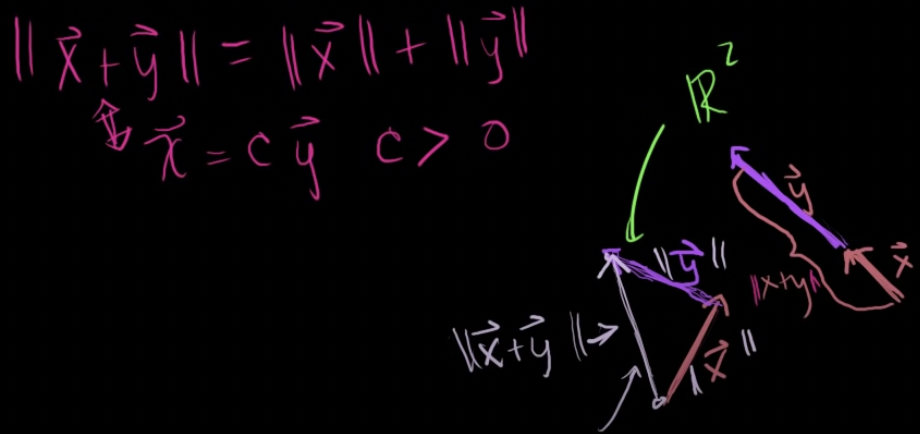 ‖x⃗+y⃗‖ = ‖x⃗‖ + ‖y⃗‖
⇕ x⃗ = c y⃗ c > 0
ℝ²
y⃗
x⃗
‖x+y‖
‖y⃗‖
‖x⃗+y⃗‖→
‖x⃗‖